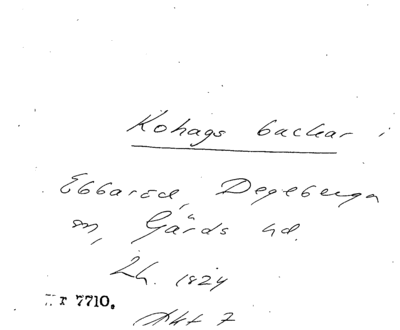 Kohags backar i
Ebbaröd, Degeberga
sn, Gärds hd.
Lh. 1824
Nr 7710.
Akt 7